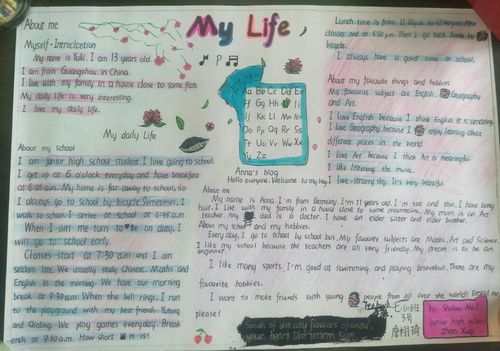 My Life
About me
Myself-Introclcetion
My name is Yuki. I am 13 years old.
I am from Guangzhou, in China.
I live with my family in a house close to some
My daily life is very interesting.
I love my daily life.
My daily life
About my school
I am junior high school student. I love going to school.
I get up at 6 o'clock everyday and have breakfast
at 6:05 a.m. My home is far away to school, so
I always go to school by bicycle. Sometimes, I
walk to school. I arrive at school at 6:45 a.m.
When I am turn to be on duty, I
will go to school early.
Classes start at 7:30 a.m. and I am
seldom late. We usually study Chinese, Maths and
English in the morning. We have our morning
break at 9:30 a.m. When the bell rings, I run
to the playground with my best friends Yutong
and Qioling. We play games everyday. Break
ends at 9:50 a.m. How short it is!
Aa Bb Cc Dd Ee
Ff Gg Hh
Jj Kk Ll Mm Nn
Oo Pp Qq Rr Ss
Tt Uu Vv Ww Xx
Yy Zz
Anna's blog
Hello everyone. Welcome to my blog.
About me
My name is Anna. I'm from Germany. I'm 11 years old. I'm tall and thin. I have long
hair. I live with my family in a house close to some mountains. My mum is an Art
teacher. My dad is a doctor. I have an elder sister and elder brother.
About my school and my hobbies.
Everyday, I go to school by school bus. My favourite subjects are Maths, Art and Science.
I like my school because the teachers are all very friendly. My dream is to be an
engineer.
I like many sports. I'm good at swimming and playing basketball. These are my
favourite hobbies.
I want to make friends with young people from all over the world! Email me,
Lunch time is from
classes end at 5:30 p.m. Then I go back home by
bicycle.
I always have a good time at school.
About my favourite things and hobbies
My favourite subject are English, Geography
and Art.
I love English because I think English it is amazing.
I love Geography because I enjoy learning about
different places in the world.
I love Art because I think Art is meaningful.
I like listening the music.
I love starry sky. It's very beautiful.
by Shilou No.2
junior high school
Zhan Xuqi